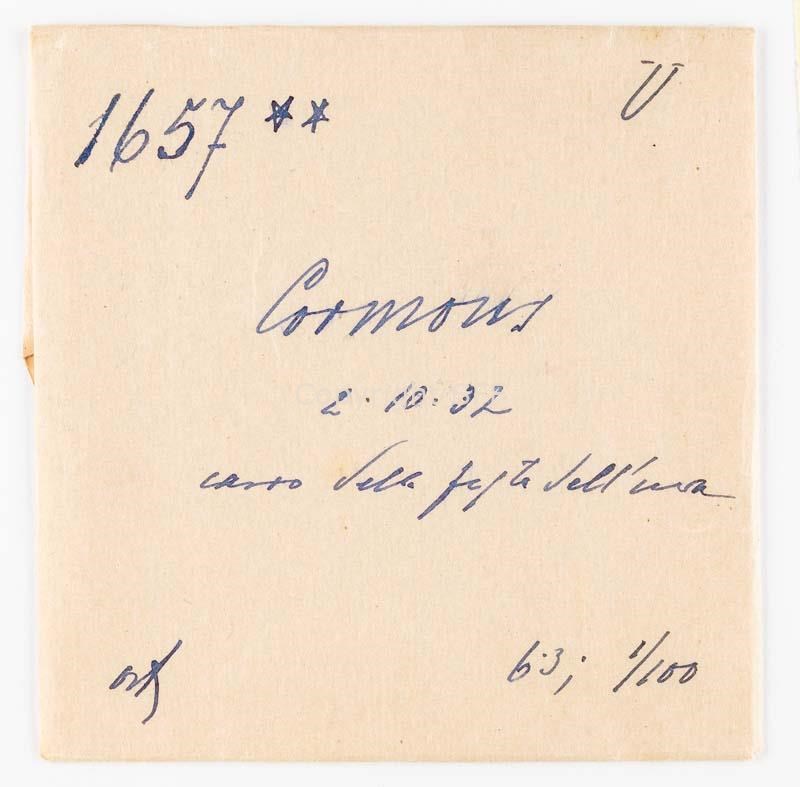 1657 ** U
Cormons
2·10·32
carro della festa dell'uva
ort
6·3; 1/100